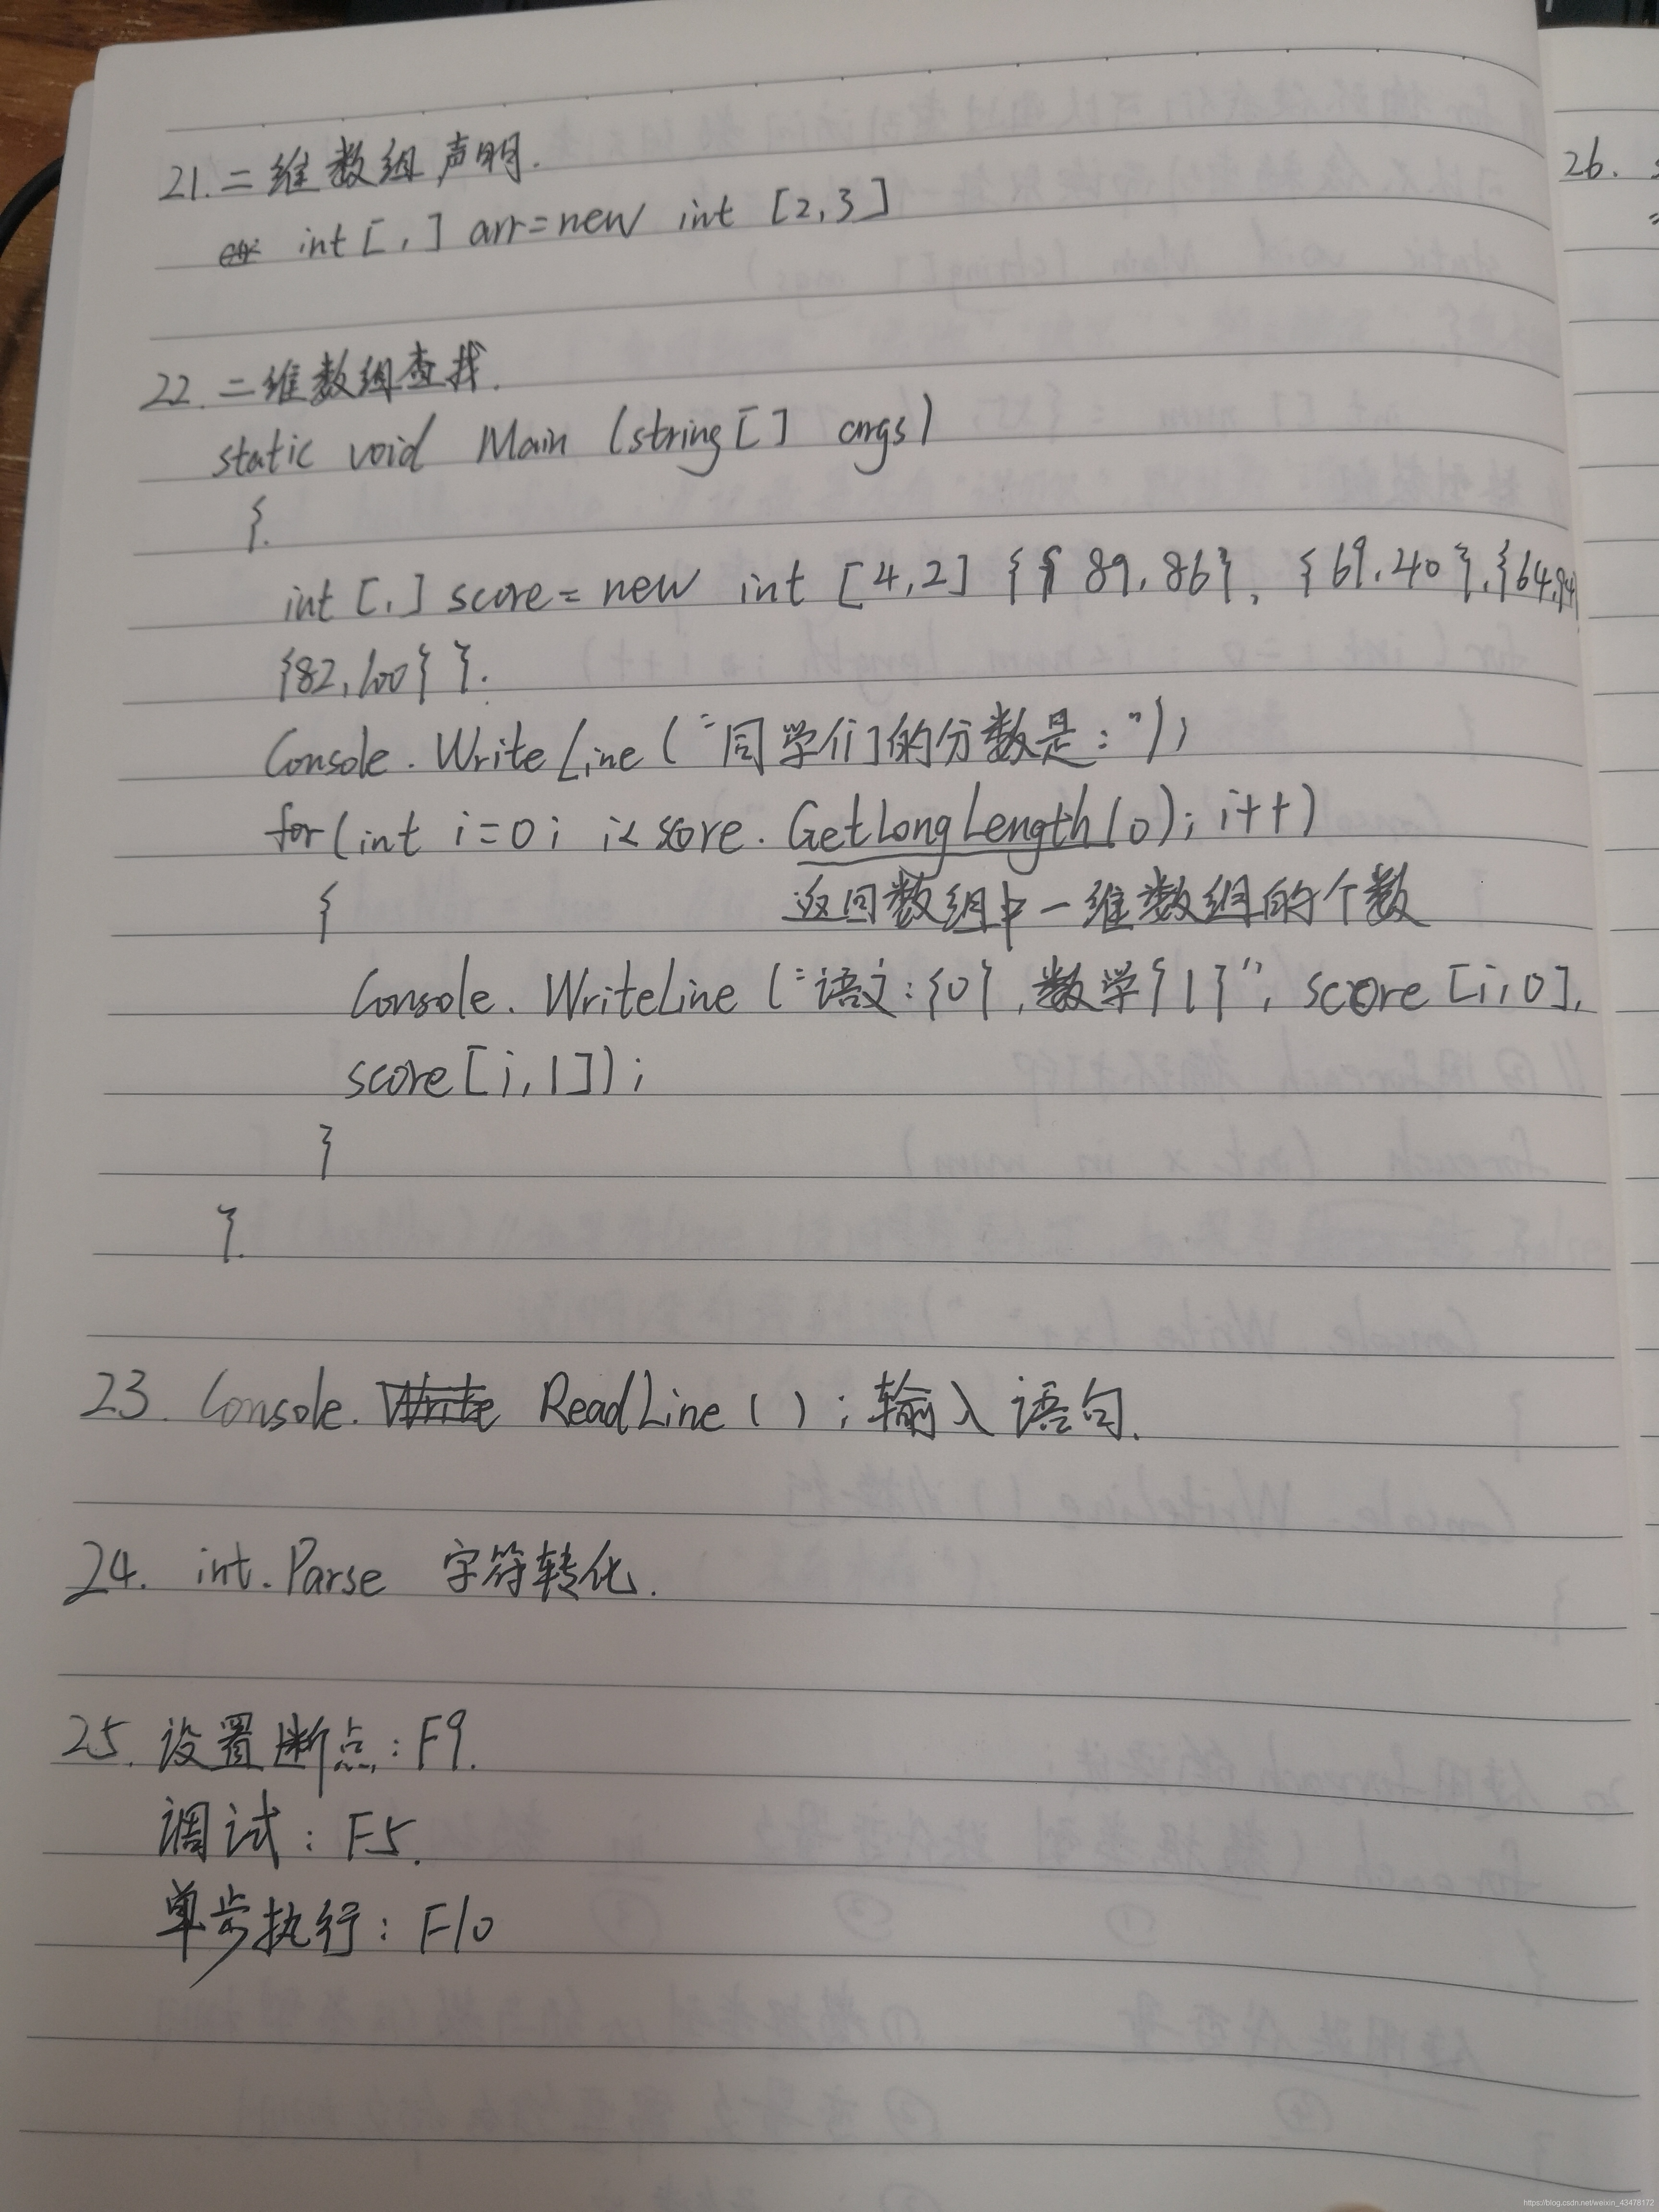 21. 二维数组声明.
int [,] arr=new int [2,3]
22. 二维数组查找.
static void Main (string[] args)
{.
int [,] score = new int [4,2] {{ 89,86}, {69,40},{64,94}
{82,100} }.
Console.WriteLine ("同学们的分数是:");
for (int i=0; i< score. GetLongLength(0); i++)
{ 返回数组中一维数组的个数
Console. WriteLine ("语文:{0},数学{1}", score [i,0],
score [i,1]);
}
}.
23. Console. Write ReadLine ( ) ; 输入语句.
24. int.Parse 字符转化.
25. 设置断点: F9.
调试: F5.
单步执行: F10
26.
https://blog.csdn.net/weixin_43478172